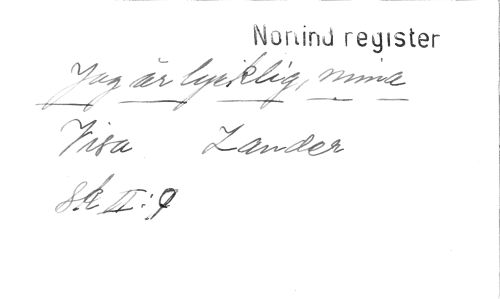 Norlind register
Jag är lycklig, mina
Visa Zander
Sk II: 9